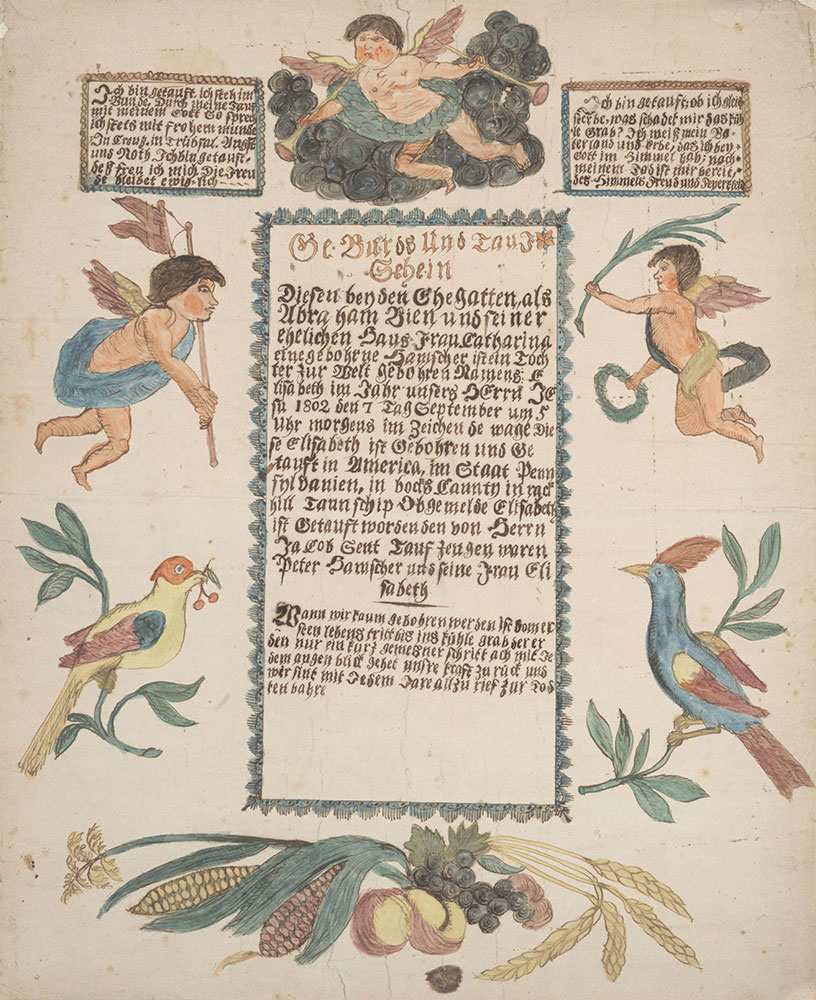 Ich bin getauft, ich steh im
Bunde, Durch meine Tauf
mit meinem Gott So sprech
ich stets mit frohem munde
In Creutz, in Trübsal, Angst
und Noth, Ich bin getauft
deß freu ich mich Die Freu
de bleibet ewig-lich
Ich bin getauft, ob ich gleich
sterbe, was schadt mir das küh
le Grab? Ich weiß mein Va-
terland und erbe, das ich bey-
Gott im Himmel hab, nach
meinem Tod ist mir bereit,
des Himmels Freud und Feyerkleid
Ge Burds Und Tauf
Schein
Diesen beyden Ehegatten, als
Abra ham Bien und seiner
ehelichen Haus Frau Catharina
eine gebohrne Hamscher ist ein Toch
ter Zur Welt gebohren Namens E
lisabeth im Jahr unsers HErrn JE
su 1802 den 7 Tag September um 5
Uhr morgens im Zeichen de wage Die
se Elisabeth ist Gebohren und Ge
tauft in America, im Staat Penn
sylvanien, in bocks Caunty in rack
hill Taunschip Obgemelde Elisabeth
ist Getauft worden den von Herrn
Ja Cob Sent Tauf Zeugen waren
Peter Hamscher und seine Frau Eli
sabeth
Wann wir kaum gebohren werden ist vom er
sten lebens tritt bis ins kühle grab der er
den nur ein kurz gemeßner schrit ach mit Je
dem augen blick gehet unsre kraft Zu rück und
wir sint mit Jedem Jare all Zu rief Zur Tod
ten bahre